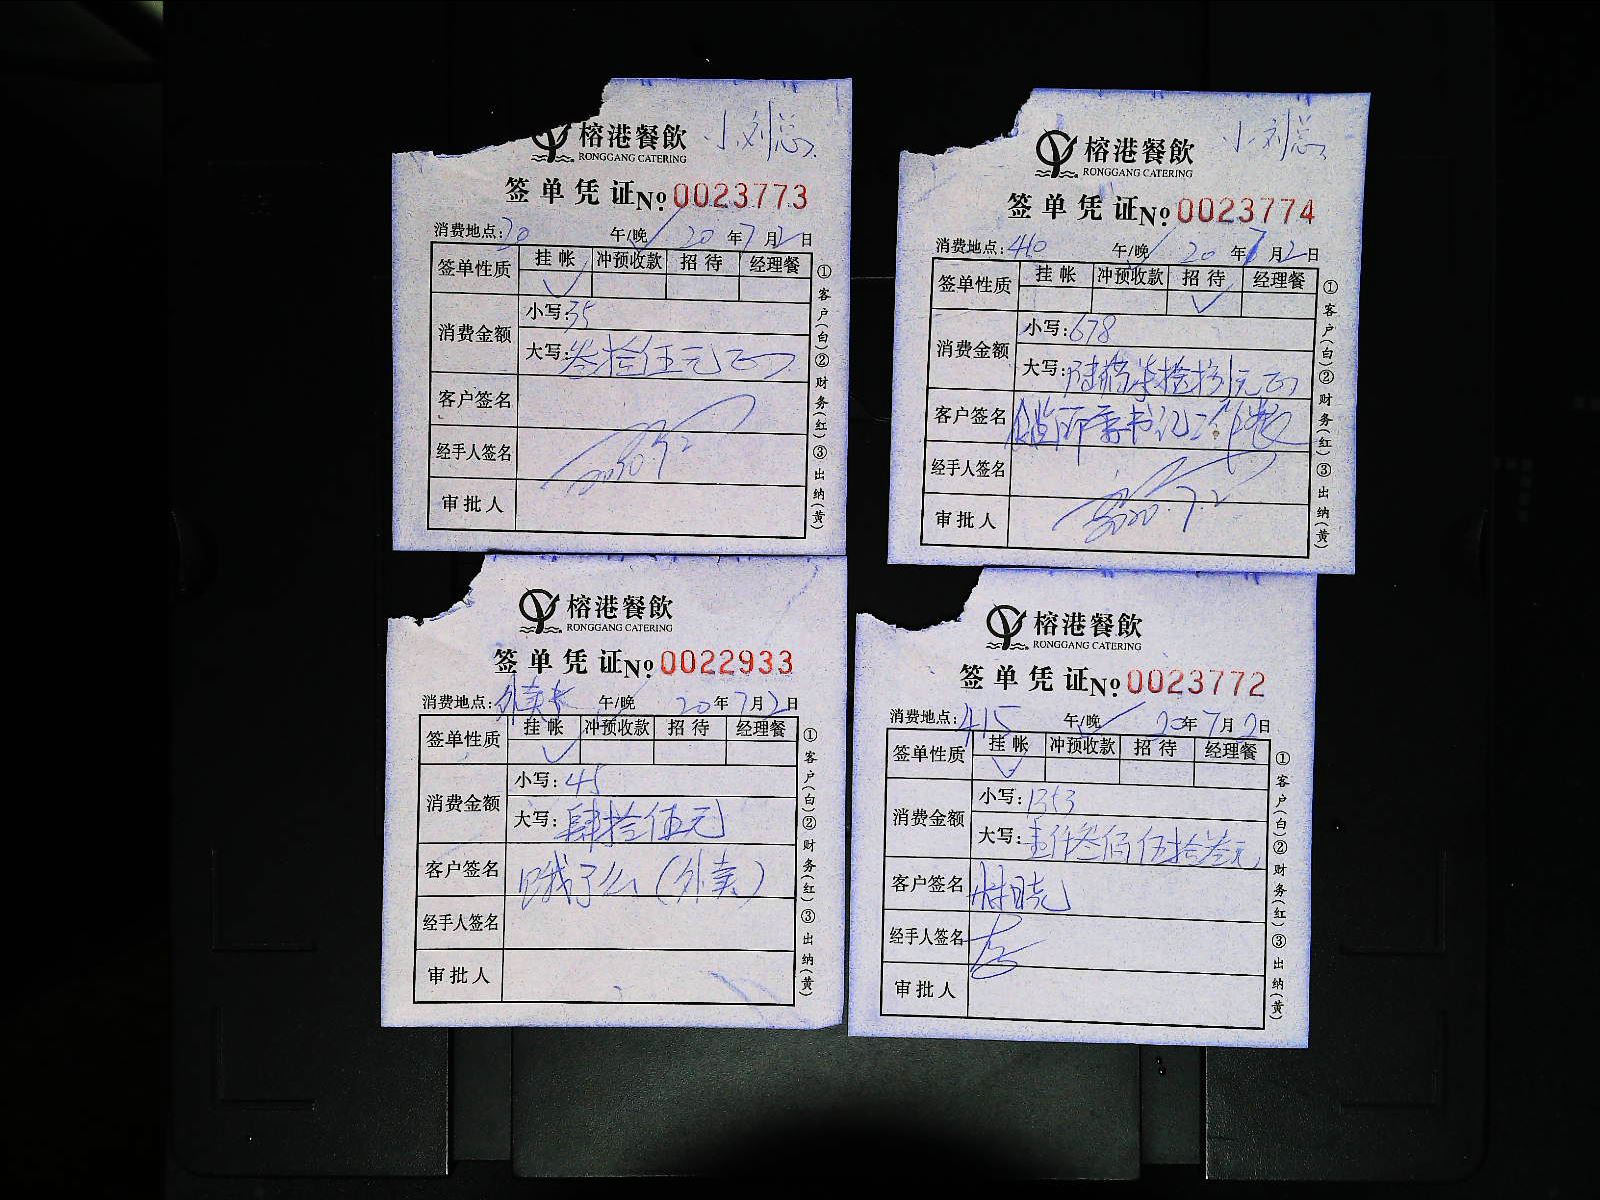 榕港餐飲 小刘总
RONGGANG CATERING
签单凭证 No. 0023773
消费地点: 20 午/晚 20年7月2日
签单性质 挂帐 冲预收款 招待 经理餐
消费金额 小写: 35
大写: 叁拾伍元正
客户签名
经手人签名 2020.7.2
审批人
①客户(白)②财务(红)③出纳(黄)
榕港餐飲 小刘总
RONGGANG CATERING
签单凭证 No. 0023774
消费地点: 410 午/晚 20年7月2日
签单性质 挂帐 冲预收款 招待 经理餐
消费金额 小写: 678
大写: 陆佰柒拾捌元正
客户签名 书记工作餐
经手人签名
审批人 2020.7.2
①客户(白)②财务(红)③出纳(黄)
榕港餐飲
RONGGANG CATERING
签单凭证 No. 0022933
消费地点: 外卖 午/晚 20年7月2日
签单性质 挂帐 冲预收款 招待 经理餐
消费金额 小写: 45
大写: 肆拾伍元
客户签名 饿了么(外卖)
经手人签名
审批人
①客户(白)②财务(红)③出纳(黄)
榕港餐飲
RONGGANG CATERING
签单凭证 No. 0023772
消费地点: 415 午/晚 20年7月2日
签单性质 挂帐 冲预收款 招待 经理餐
消费金额 小写: 1353
大写: 壹仟叁佰伍拾叁元
客户签名
经手人签名
审批人
①客户(白)②财务(红)③出纳(黄)